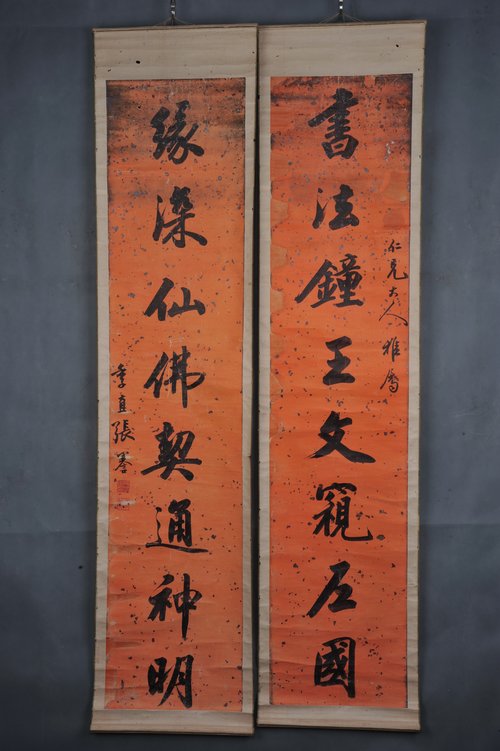 仁亮大人雅屬
書法鐘王文窺左國
緣深仙佛契通神明
季直張謇